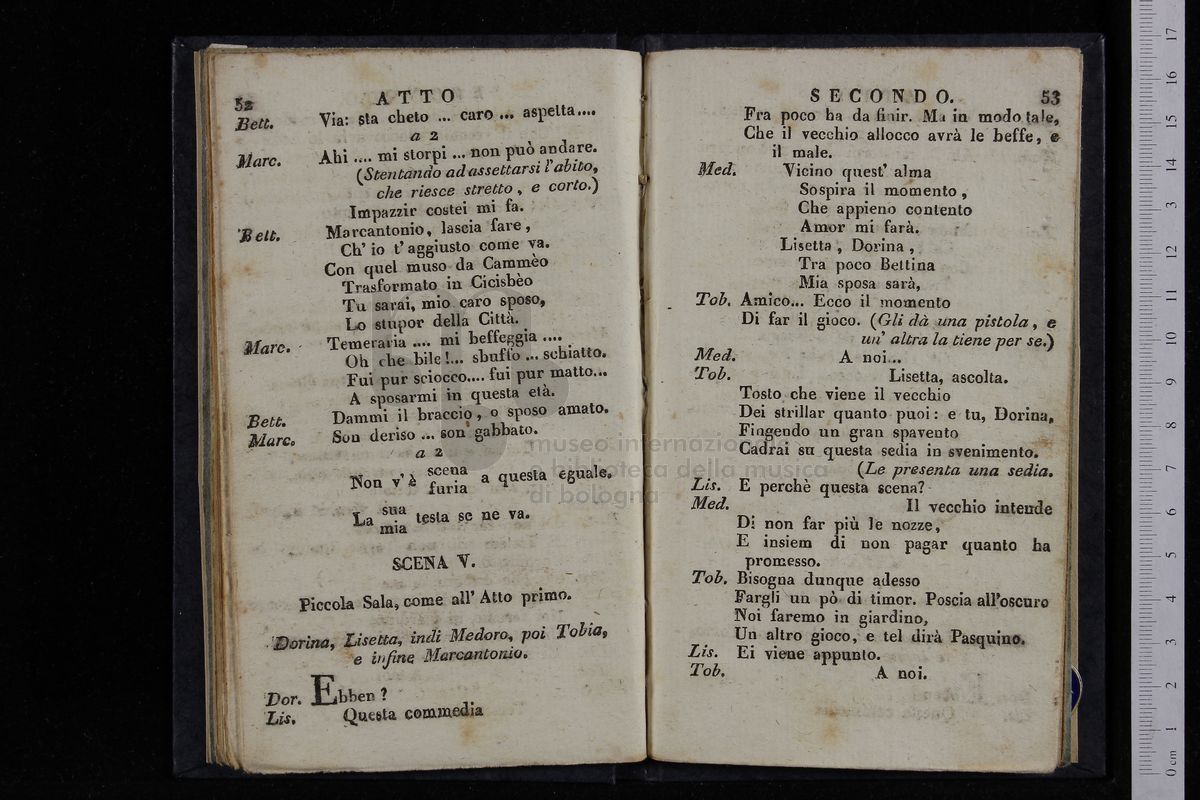 52 ATTO
Bett. Via: sta cheto ... caro ... aspetta....
a 2
Marc. Ahi .... mi storpi ... non può andare.
(Stentando ad assettarsi l'abito,
che riesce stretto, e corto.)
Impazzir costei mi fa.
Bett. Marcantonio, lascia fare,
Ch' io t' aggiusto come va.
Con quel muso da Cammèo
Trasformato in Cicisbèo
Tu sarai, mio caro sposo,
Lo stupor della Città.
Marc. Temeraria .... mi beffeggia ....
Oh che bile!... sbuffo ... schiatto.
Fui pur sciocco.... fui pur matto...
A sposarmi in questa età.
Bett. Dammi il braccio, o sposo amato.
Marc. Son deriso ... son gabbato.
a 2
Non v'è scena a questa eguale.
furia
La sua testa se ne va.
mia
SCENA V.
Piccola Sala, come all' Atto primo.
Dorina, Lisetta, indi Medoro, poi Tobia,
e infine Marcantonio.
Dor. Ebben ?
Lis. Questa commedia
SECONDO. 53
Fra poco ha da finir. Ma in modo tale,
Che il vecchio allocco avrà le beffe, e
il male.
Med. Vicino quest' alma
Sospira il momento,
Che appieno contento
Amor mi farà.
Lisetta, Dorina,
Tra poco Bettina
Mia sposa sarà,
Tob. Amico... Ecco il momento
Di far il gioco. (Gli dà una pistola, e
un' altra la tiene per se.)
Med. A noi...
Tob. Lisetta, ascolta.
Tosto che viene il vecchio
Dei strillar quanto puoi: e tu, Dorina,
Fingendo un gran spavento
Cadrai su questa sedia in svenimento.
(Le presenta una sedia.
Lis. E perchè questa scena?
Med. Il vecchio intende
Di non far più le nozze,
E insiem di non pagar quanto ha
promesso.
Tob. Bisogna dunque adesso
Fargli un pò di timor. Poscia all'oscuro
Noi faremo in giardino,
Un altro gioco, e tel dirà Pasquino.
Lis. Ei viene appunto.
Tob. A noi.
museo internazionale
e biblioteca della musica
di bologna
0 cm 1 2 3 4 5 6 7 8 9 10 11 12 13 14 15 16 17